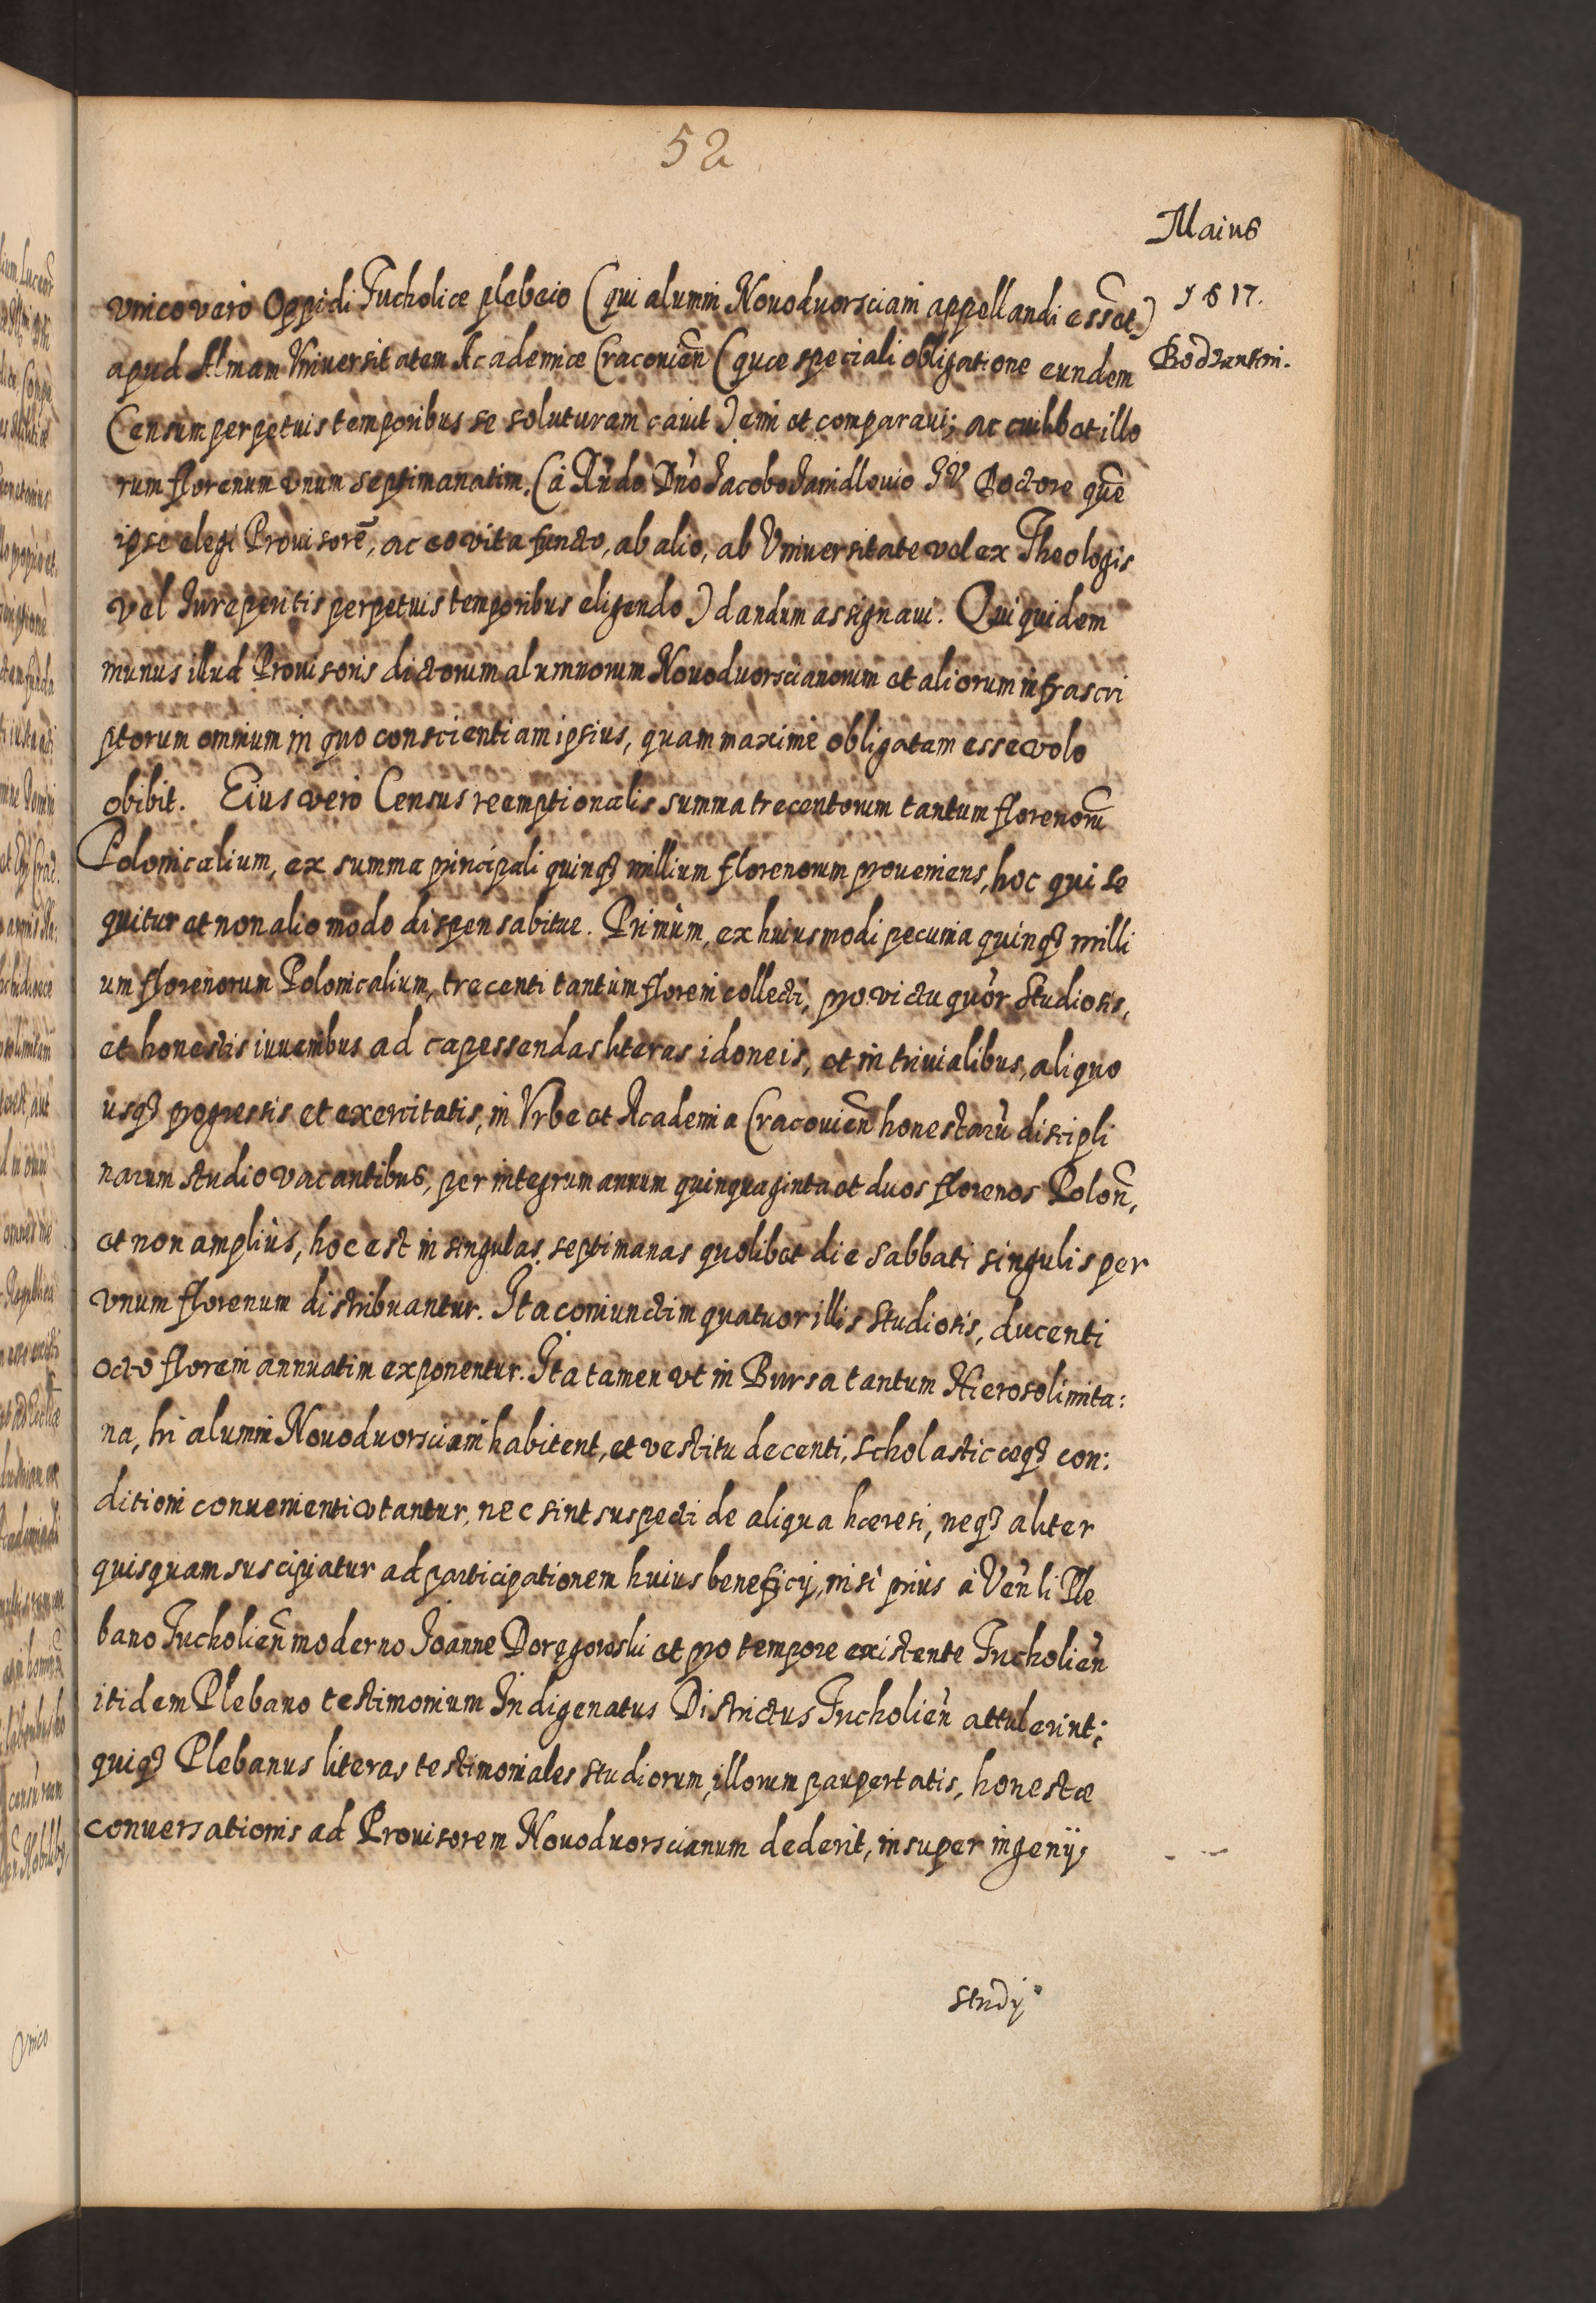 52
Maius
1617.
Bodzentini.
vnico vero Oppidi Tucholiæ plebeio (qui alumni Nouoduorsciani appellandi essēt)
apud Almam Vniversitatem Academiæ Cracouien̄ (quæ speciali obligatione eundem
Censum perpetuis temporibus se soluturam cavit) emi et comparavi; ac cuilibet illo
rum florenum vnum septimanatim, (à Rńdo Dńo Jacobo Janidlouio JV Doctore quē
ipse elegi Prouisorē, ac eo vita functo, ab alio, ab Vniuersitate vel ex Theologis
vel Jureperitis perpetuis temporibus eligendo) dandum assignaui. Qui quidem
munus illud Prouisoris dictorum alumnorum Nouoduorscianorum et aliorum infrascri
ptorum omnium in quo conscientiam ipsius, quam maximè obligatam esse volo
obibit. Eius vero Census reemptionalis summa trecentorum tantum florenorū
Polonicalium, ex summa principali quinqȝ millium florenorum proueniens, hoc qui se
quitur et non alio modo dispensabitur. Primùm, ex huiusmodi pecunia quinqȝ milli
um florenorum Polonicalium, trecenti tantùm floreni collecti, pro victu quòr Studiosis,
et honestis iuuenibus ad capessendas literas idoneis, et in triuialibus, aliquo
usqȝ progressis et exercitatis, in Vrbe et Academia Cracouien̄ honestarū discipli
narum studio vacantibus, per integrum annum quinquaginta et duos florenos Polon̄,
et non ampliùs, hoc est in singulas septimanas quolibet die Sabbati singulis per
vnum florenum distribuantur. Ita coniunctim quatuor illis Studiosis, ducenti
octo floreni annuatim exponentur. Ita tamen vt in Bursa tantum Hierosolimita:
na, hi alumni Nouoduorsciani habitent, et vestitu decenti, scholasticæqȝ con:
ditioni conuenienti vtantur, nec sint suspecti de aliqua hæresi, neqȝ aliter
quisquam suscipiatur ad participationem huius beneficij, nisi priùs à Ven̄li Ple
bano Tucholien̄ moderno Joanne Doręgowski et pro tempore existente Tucholien̄
itidem Plebano testimonium Indigenatus Districtus Tucholien̄ attulerint;
quiqȝ Plebanus literas testimoniales studiorum, illorum paupertatis, honestæ
conuersationis ad Prouisorem Nouoduorscianum dederit, insuper ingenij,
studij
Vnico